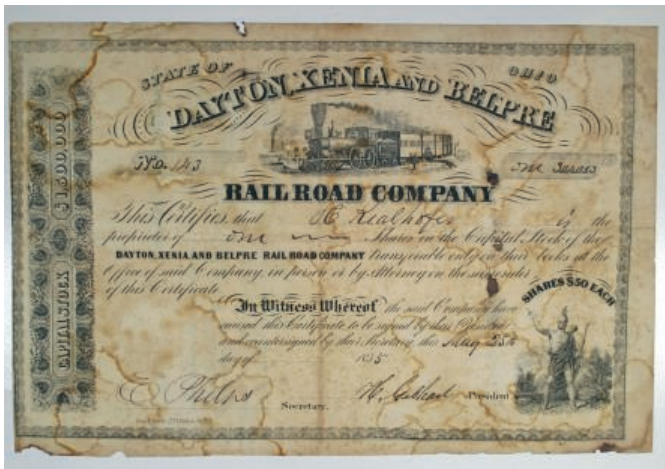 STATE OF OHIO
DAYTON, XENIA AND BELPRE
No. 143
One Shares
RAIL ROAD COMPANY
This Certifies that H Kealhofer is the
proprietor of One Shares in the Capital Stock of the
DAYTON, XENIA AND BELPRE RAIL ROAD COMPANY Transferable only on their Books at the
Office of said Company, in person or by Attorney on the surrender
of this Certificate
In Witness Whereof the said Company have
caused this Certificate to be signed by their President
and countersigned by their Secretary this May 25th
day of 1855
Phelps Secretary.
H. Gebhart President
CAPITAL STOCK $1,500,000
SHARES $50 EACH